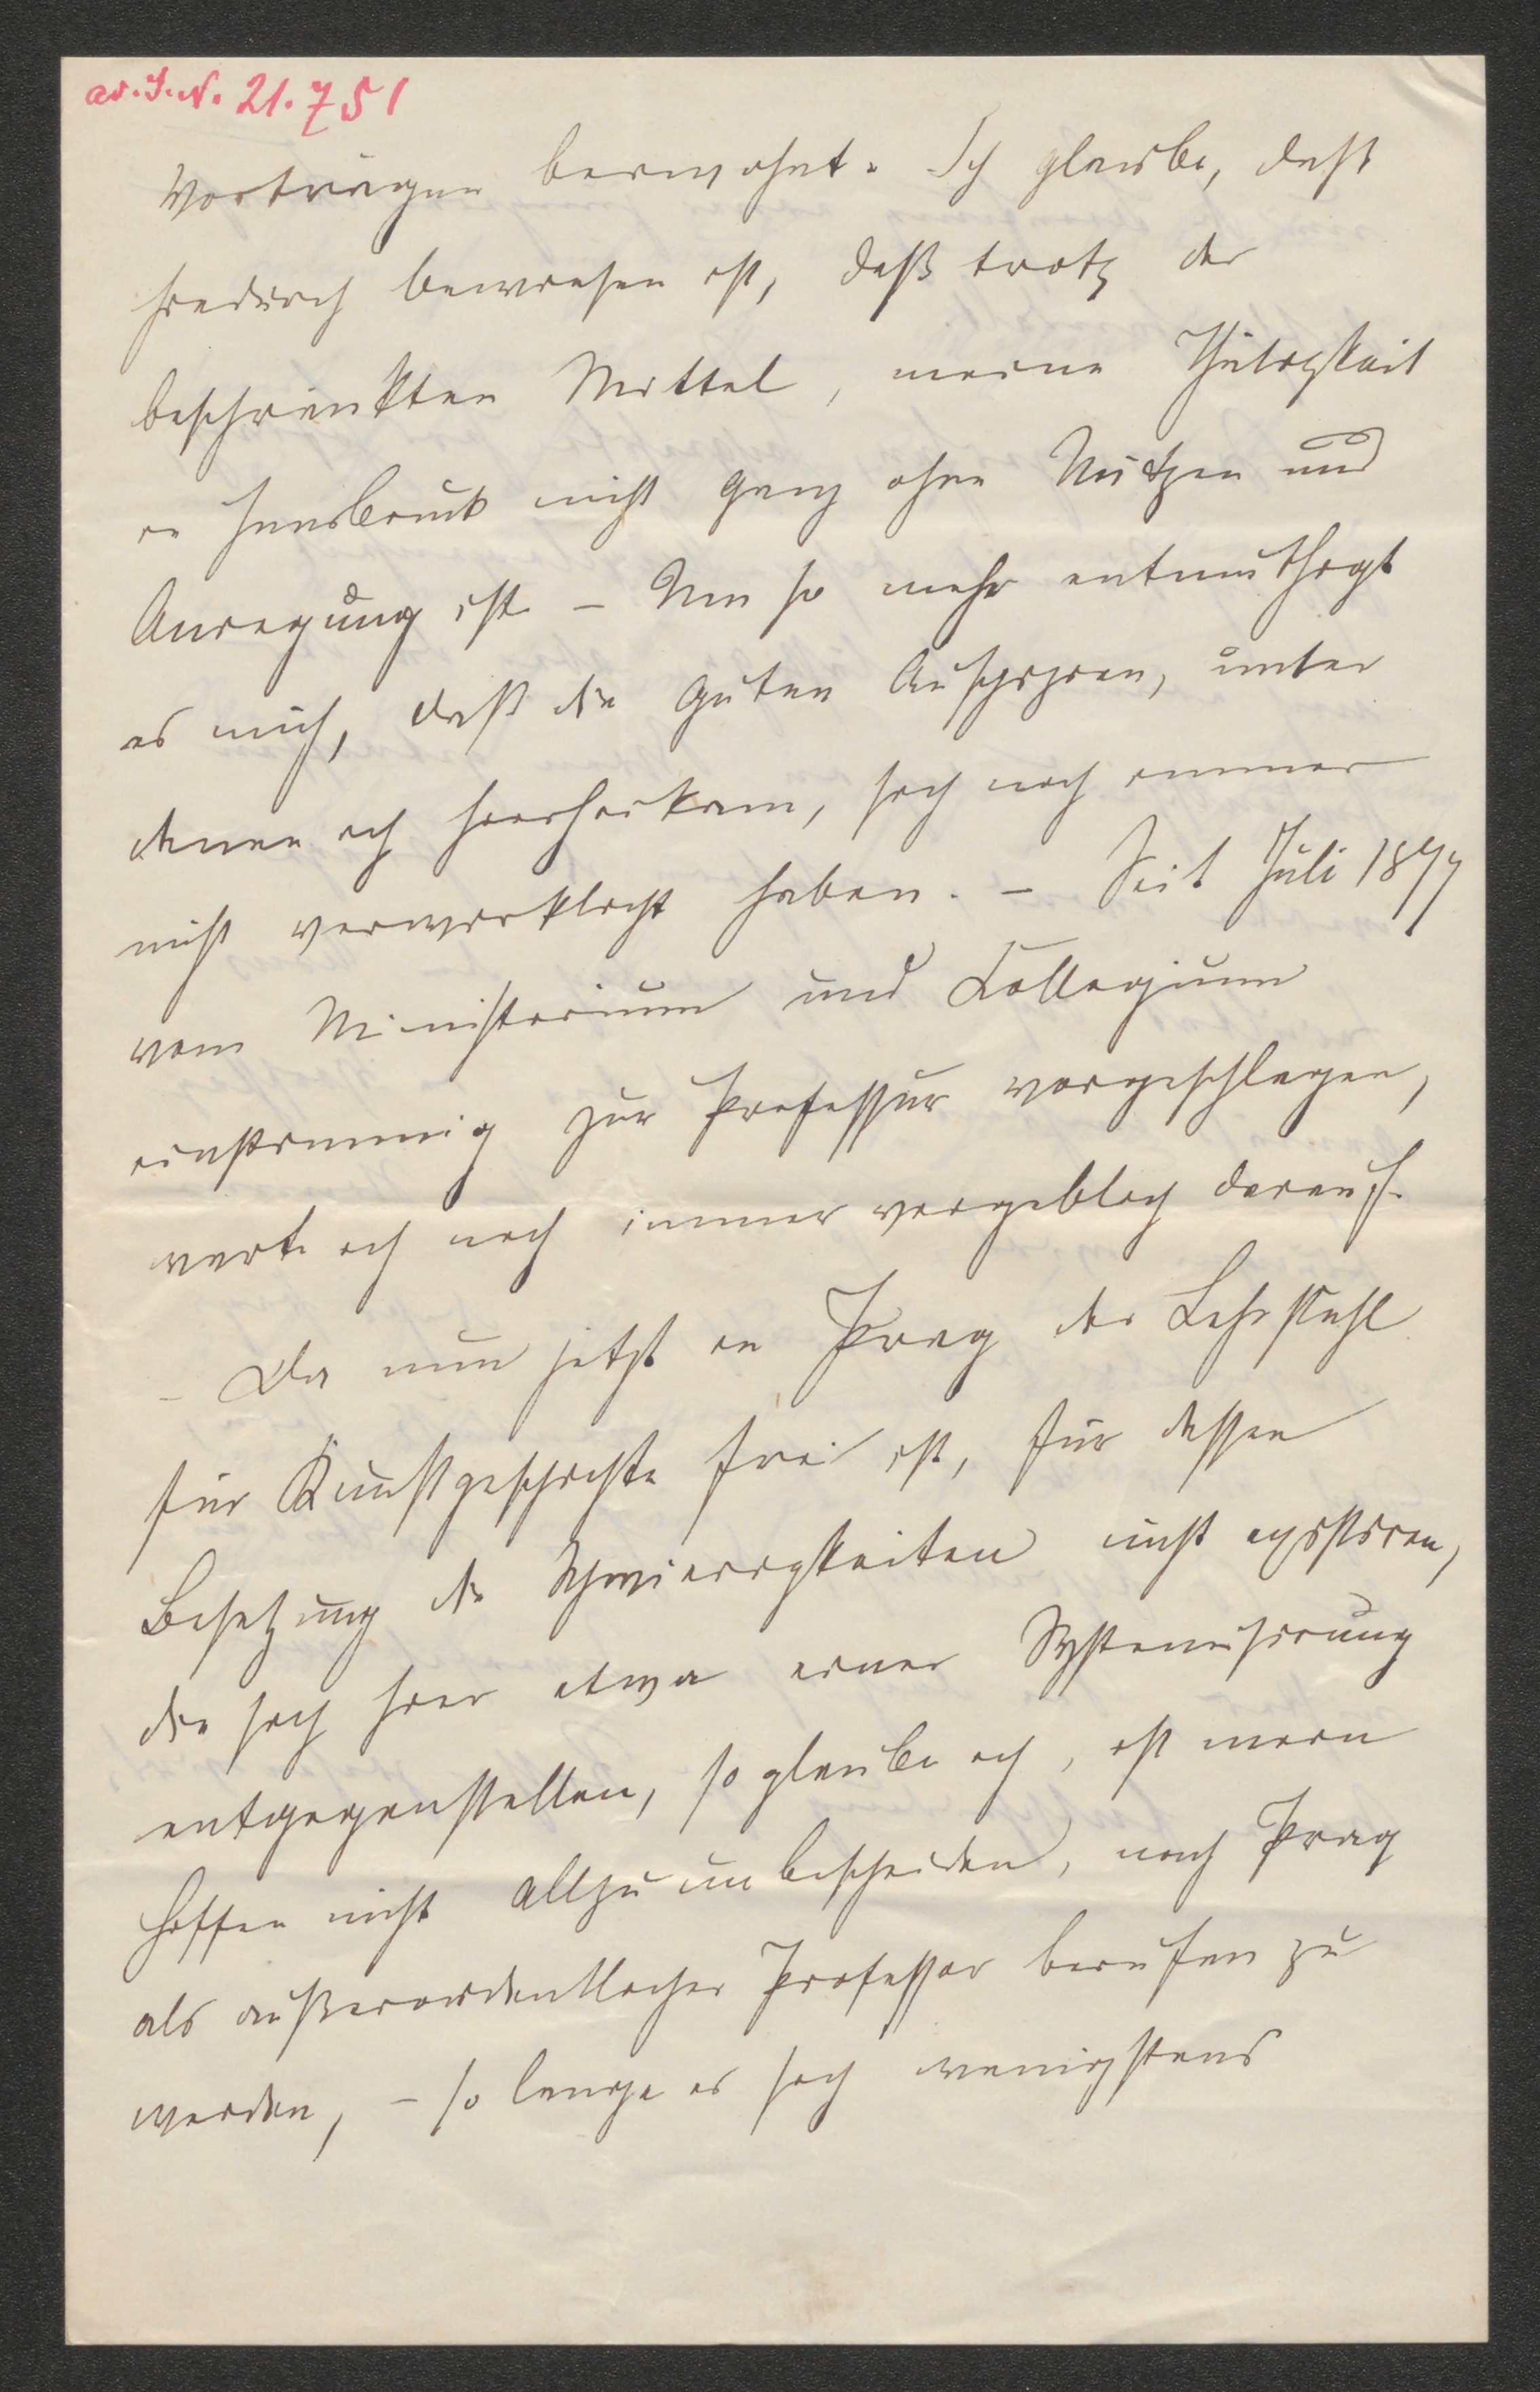 av. J. N. 21.751
Vorträgen beiwohnt. Ich glaube, daß
hiedurch bewiesen ist, daß trotz der
beschränkten Mittel, meine Thätigkeit
in Innsbruck nicht ganz ohne Nutzen und
Anregung ist. – Um so mehr entmuthigt
es mich, daß die guten Auspizien, unter
denen ich hierherkam, sich noch immer
nicht verwirklicht haben. – Seit Juli 1877
vom Ministerium und Collegium
einstimmig zur Professur vorgeschlagen,
warte ich noch immer vergeblich darauf.
– Da nun jetzt in Prag der Lehrstuhl
für Kunstgeschichte frei ist, für dessen
Besetzung die Schwierigkeiten nicht existiren,
die sich hier etwa einer Systemisirung
entgegenstellen, so glaube ich, ist mein
Hoffen nicht allzu unbescheiden, nach Prag
als außerordentlicher Professor berufen zu
werden, – so lange es sich wenigstens